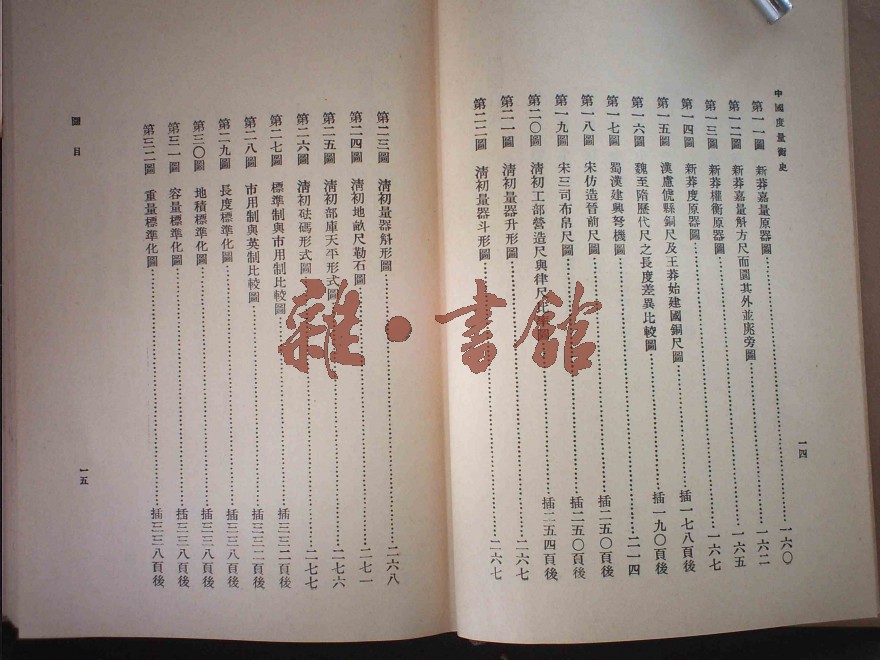 中國度量衡史
第一一圖　新莽嘉量原器圖……一六〇
第一二圖　新莽嘉量斛方尺而圜其外並庣旁圖……一六二
第一三圖　新莽權衡原器圖……一六五
第一四圖　新莽度原器圖……一六七
第一五圖　漢慮俿縣銅尺及王莽始建國銅尺圖……插一七八頁後
第一六圖　魏至隋歷代尺之長度差異比較圖……插一九〇頁後
第一七圖　蜀漢建興弩機圖……二一四
第一八圖　宋仿造晉前尺圖……插二五〇頁後
第一九圖　宋三司布帛尺圖……插二五〇頁後
第二〇圖　清初工部營造尺與律尺比圖……插二五四頁後
第二一圖　清初量器升形圖……二六七
第二二圖　清初量器斗形圖……二六七
一四
第二三圖　清初量器斛形圖……二六八
第二四圖　清初地畝尺勒石圖……二七一
第二五圖　清初部庫天平形式圖……二七六
第二六圖　清初砝碼形式圖……二七七
第二七圖　標準制與市用制比較圖……插三三二頁後
第二八圖　市用制與英制比較圖……插三三二頁後
第二九圖　長度標準化圖……插三三八頁後
第三〇圖　地積標準化圖……插三三八頁後
第三一圖　容量標準化圖……插三三八頁後
第三二圖　重量標準化圖……插三三八頁後
圖目
一五
雜·書館